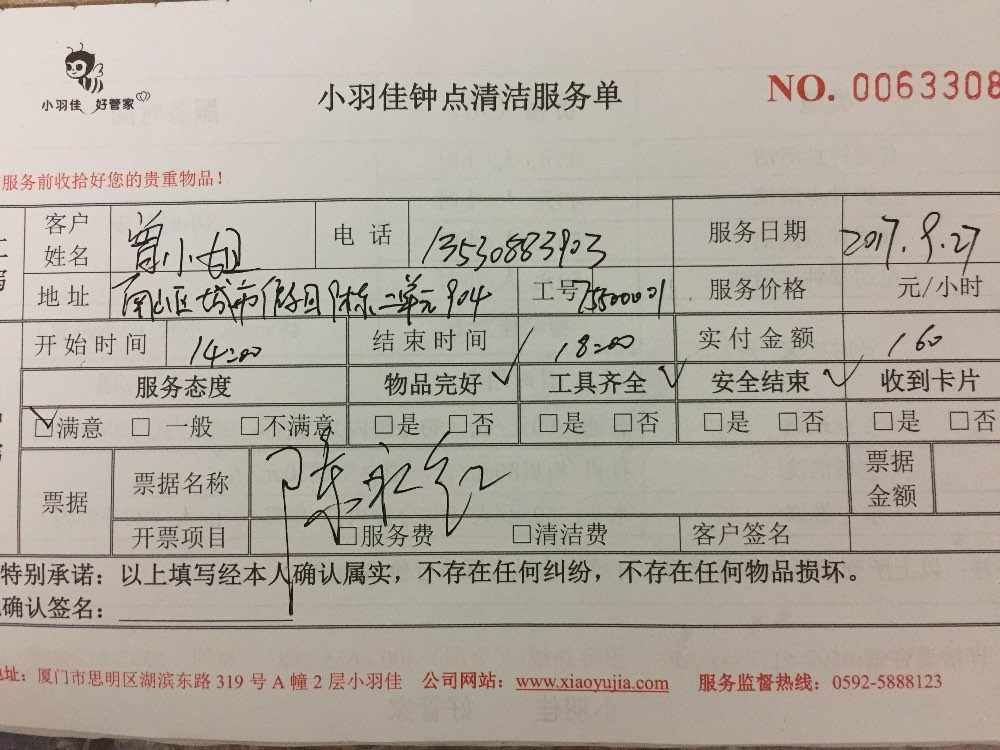 小羽佳 好管家
小羽佳钟点清洁服务单
NO. 0063308
服务前收拾好您的贵重物品！
客户姓名 曾小姐 电话 13530883903 服务日期 2017.9.27
地址 南山区城市假日9栋二单元904 工号 75500001 服务价格 元/小时
开始时间 14:00 结束时间 18:00 实付金额 160
服务态度 物品完好 ✓ 工具齐全 ✓ 安全结束 ✓ 收到卡片
☑满意 □一般 □不满意 □是 □否 □是 □否 □是 □否 □是 □否
票据 票据名称 陈永红 票据金额
开票项目 □服务费 □清洁费 客户签名
特别承诺：以上填写经本人确认属实，不存在任何纠纷，不存在任何物品损坏。
确认签名：
地址：厦门市思明区湖滨东路 319 号 A 幢 2 层小羽佳 公司网站：www.xiaoyujia.com 服务监督热线：0592-5888123